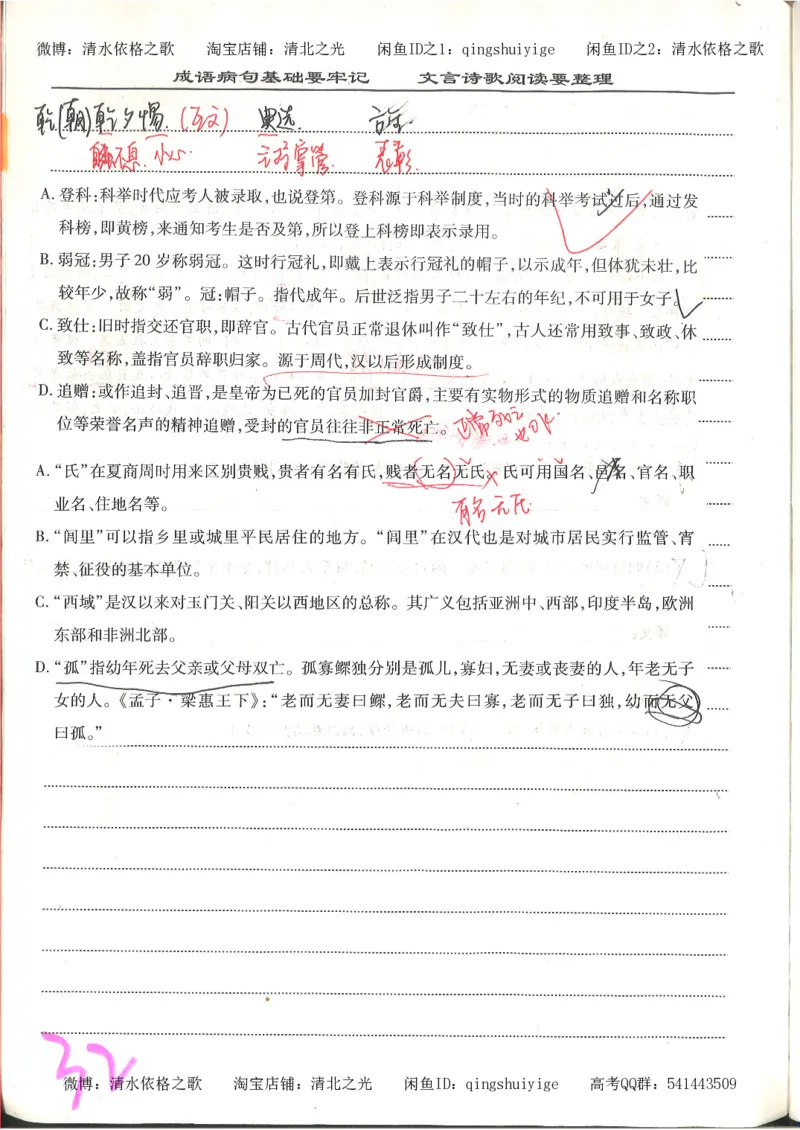 微博：清水依格之歌 淘宝店铺：清北之光 闲鱼ID之1：qingshuiyige 闲鱼ID之2：清水依格之歌
成语病句基础要牢记 文言诗歌阅读要整理
乾(朝)乾夕惕 (互文) 典选
小心 主持掌管 表彰
A.登科:科举时代应考人被录取,也说登第。登科源于科举制度,当时的科举考试过后,通过发
科榜,即黄榜,来通知考生是否及第,所以登上科榜即表示录用。
B.弱冠:男子20岁称弱冠。这时行冠礼,即戴上表示行冠礼的帽子,以示成年,但体犹未壮,比
较年少,故称“弱”。冠:帽子。指代成年。后世泛指男子二十左右的年纪,不可用于女子。
C.致仕:旧时指交还官职,即辞官。古代官员正常退休叫作“致仕”,古人还常用致事、致政、休
致等名称,盖指官员辞职归家。源于周代,汉以后形成制度。
D.追赠:或作追封、追晋,是皇帝为已死的官员加封官爵,主要有实物形式的物质追赠和名称职
位等荣誉名声的精神追赠,受封的官员往往非正常死亡。正常死亡也可以
A.“氏”在夏商周时用来区别贵贱,贵者有名有氏,贱者无名无氏。氏可用国名、邑名、官名、职
业名、住地名等。 有名无氏
B.“闾里”可以指乡里或城里平民居住的地方。“闾里”在汉代也是对城市居民实行监管、宵
禁、征役的基本单位。
C.“西域”是汉以来对玉门关、阳关以西地区的总称。其广义包括亚洲中、西部,印度半岛,欧洲
东部和非洲北部。
D.“孤”指幼年死去父亲或父母双亡。孤寡鳏独分别是孤儿,寡妇,无妻或丧妻的人,年老无子
女的人。《孟子·梁惠王下》:“老而无妻曰鳏,老而无夫曰寡,老而无子曰独,幼而无父
曰孤。”
32
微博：清水依格之歌 淘宝店铺：清北之光 闲鱼ID：qingshuiyige 高考QQ群：541443509